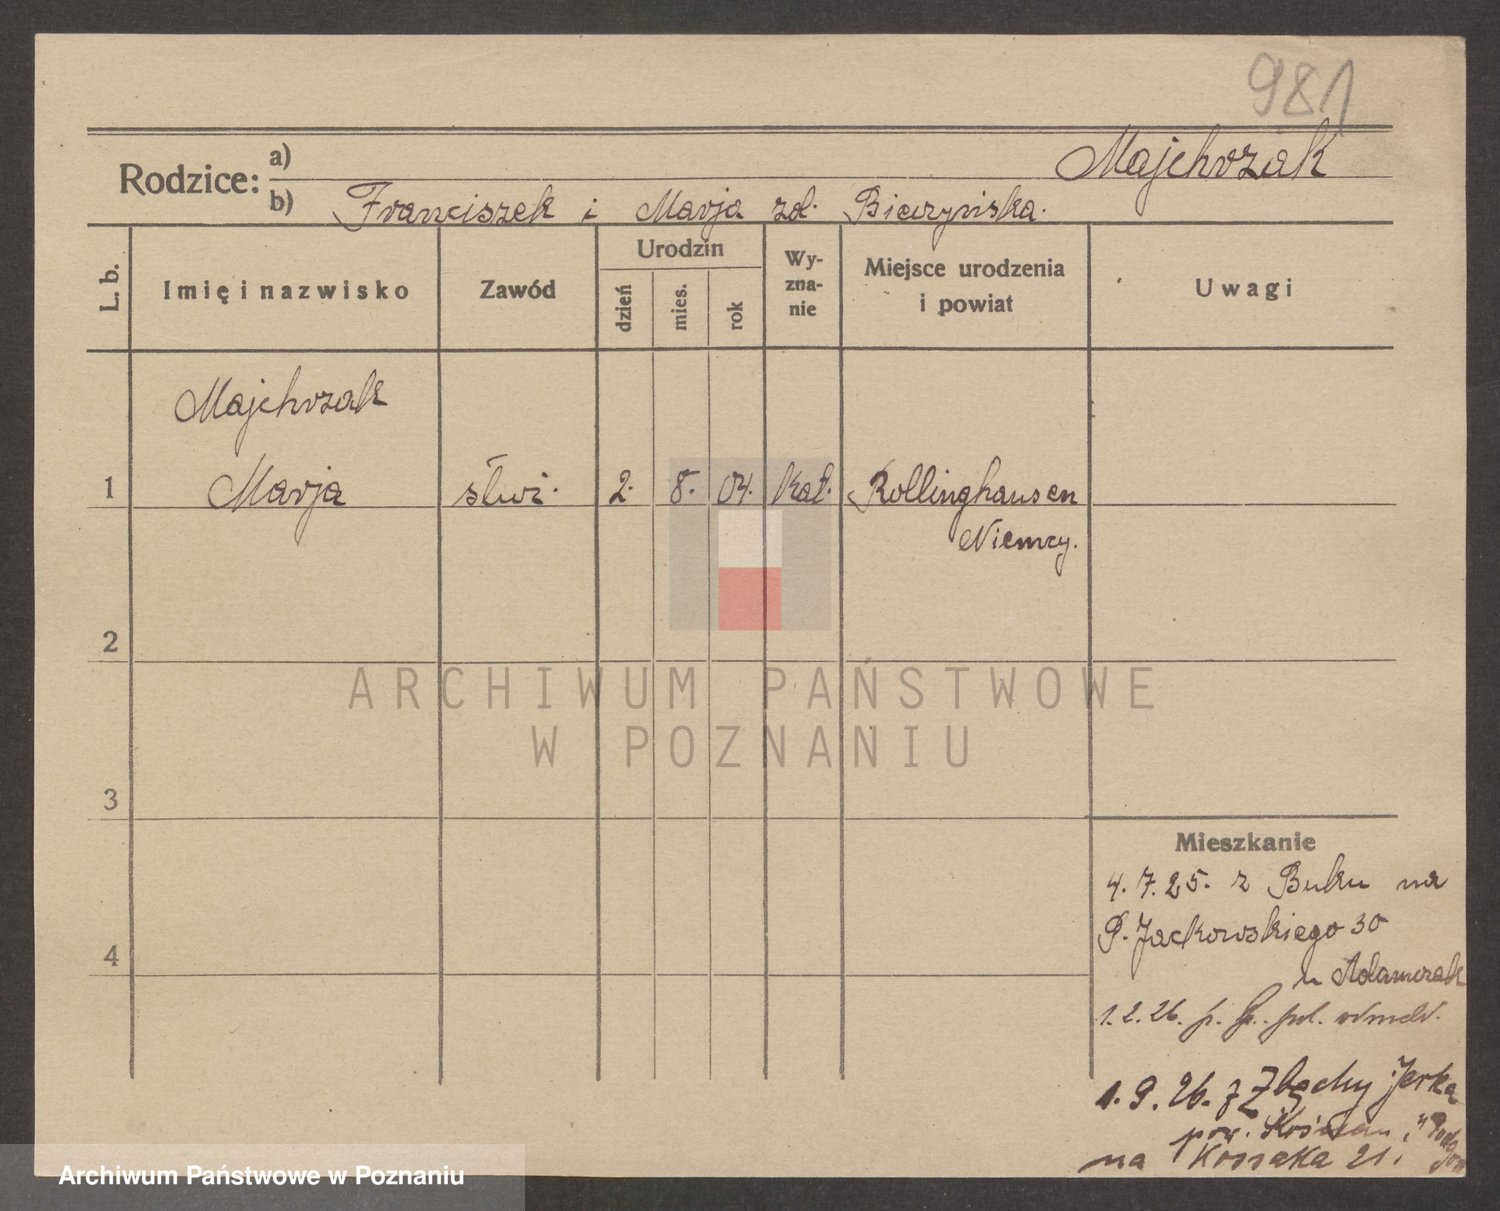 981
Majchrzak
Rodzice: a)
b) Franciszek i Marja zd. Bierzyńska.
L. b.
Imię i nazwisko
Zawód
Urodzin
dzień
mies.
rok
Wy-
zna-
nie
Miejsce urodzenia
i powiat
Uwagi
Majchrzak
1 Marja służ. 2. 8. 04. kat. Rollinghausen
Niemcy.
2
ARCHIWUM PAŃSTWOWE
W POZNANIU
3
Mieszkanie
4. 7. 25. z Buku na
P. Jackowskiego 30
u Adamczak
4
1. 2. 26. p.
1. 9. 26. z Zbęchy Jerka
pow. Kościan
na Kossaka 21.
Archiwum Państwowe w Poznaniu